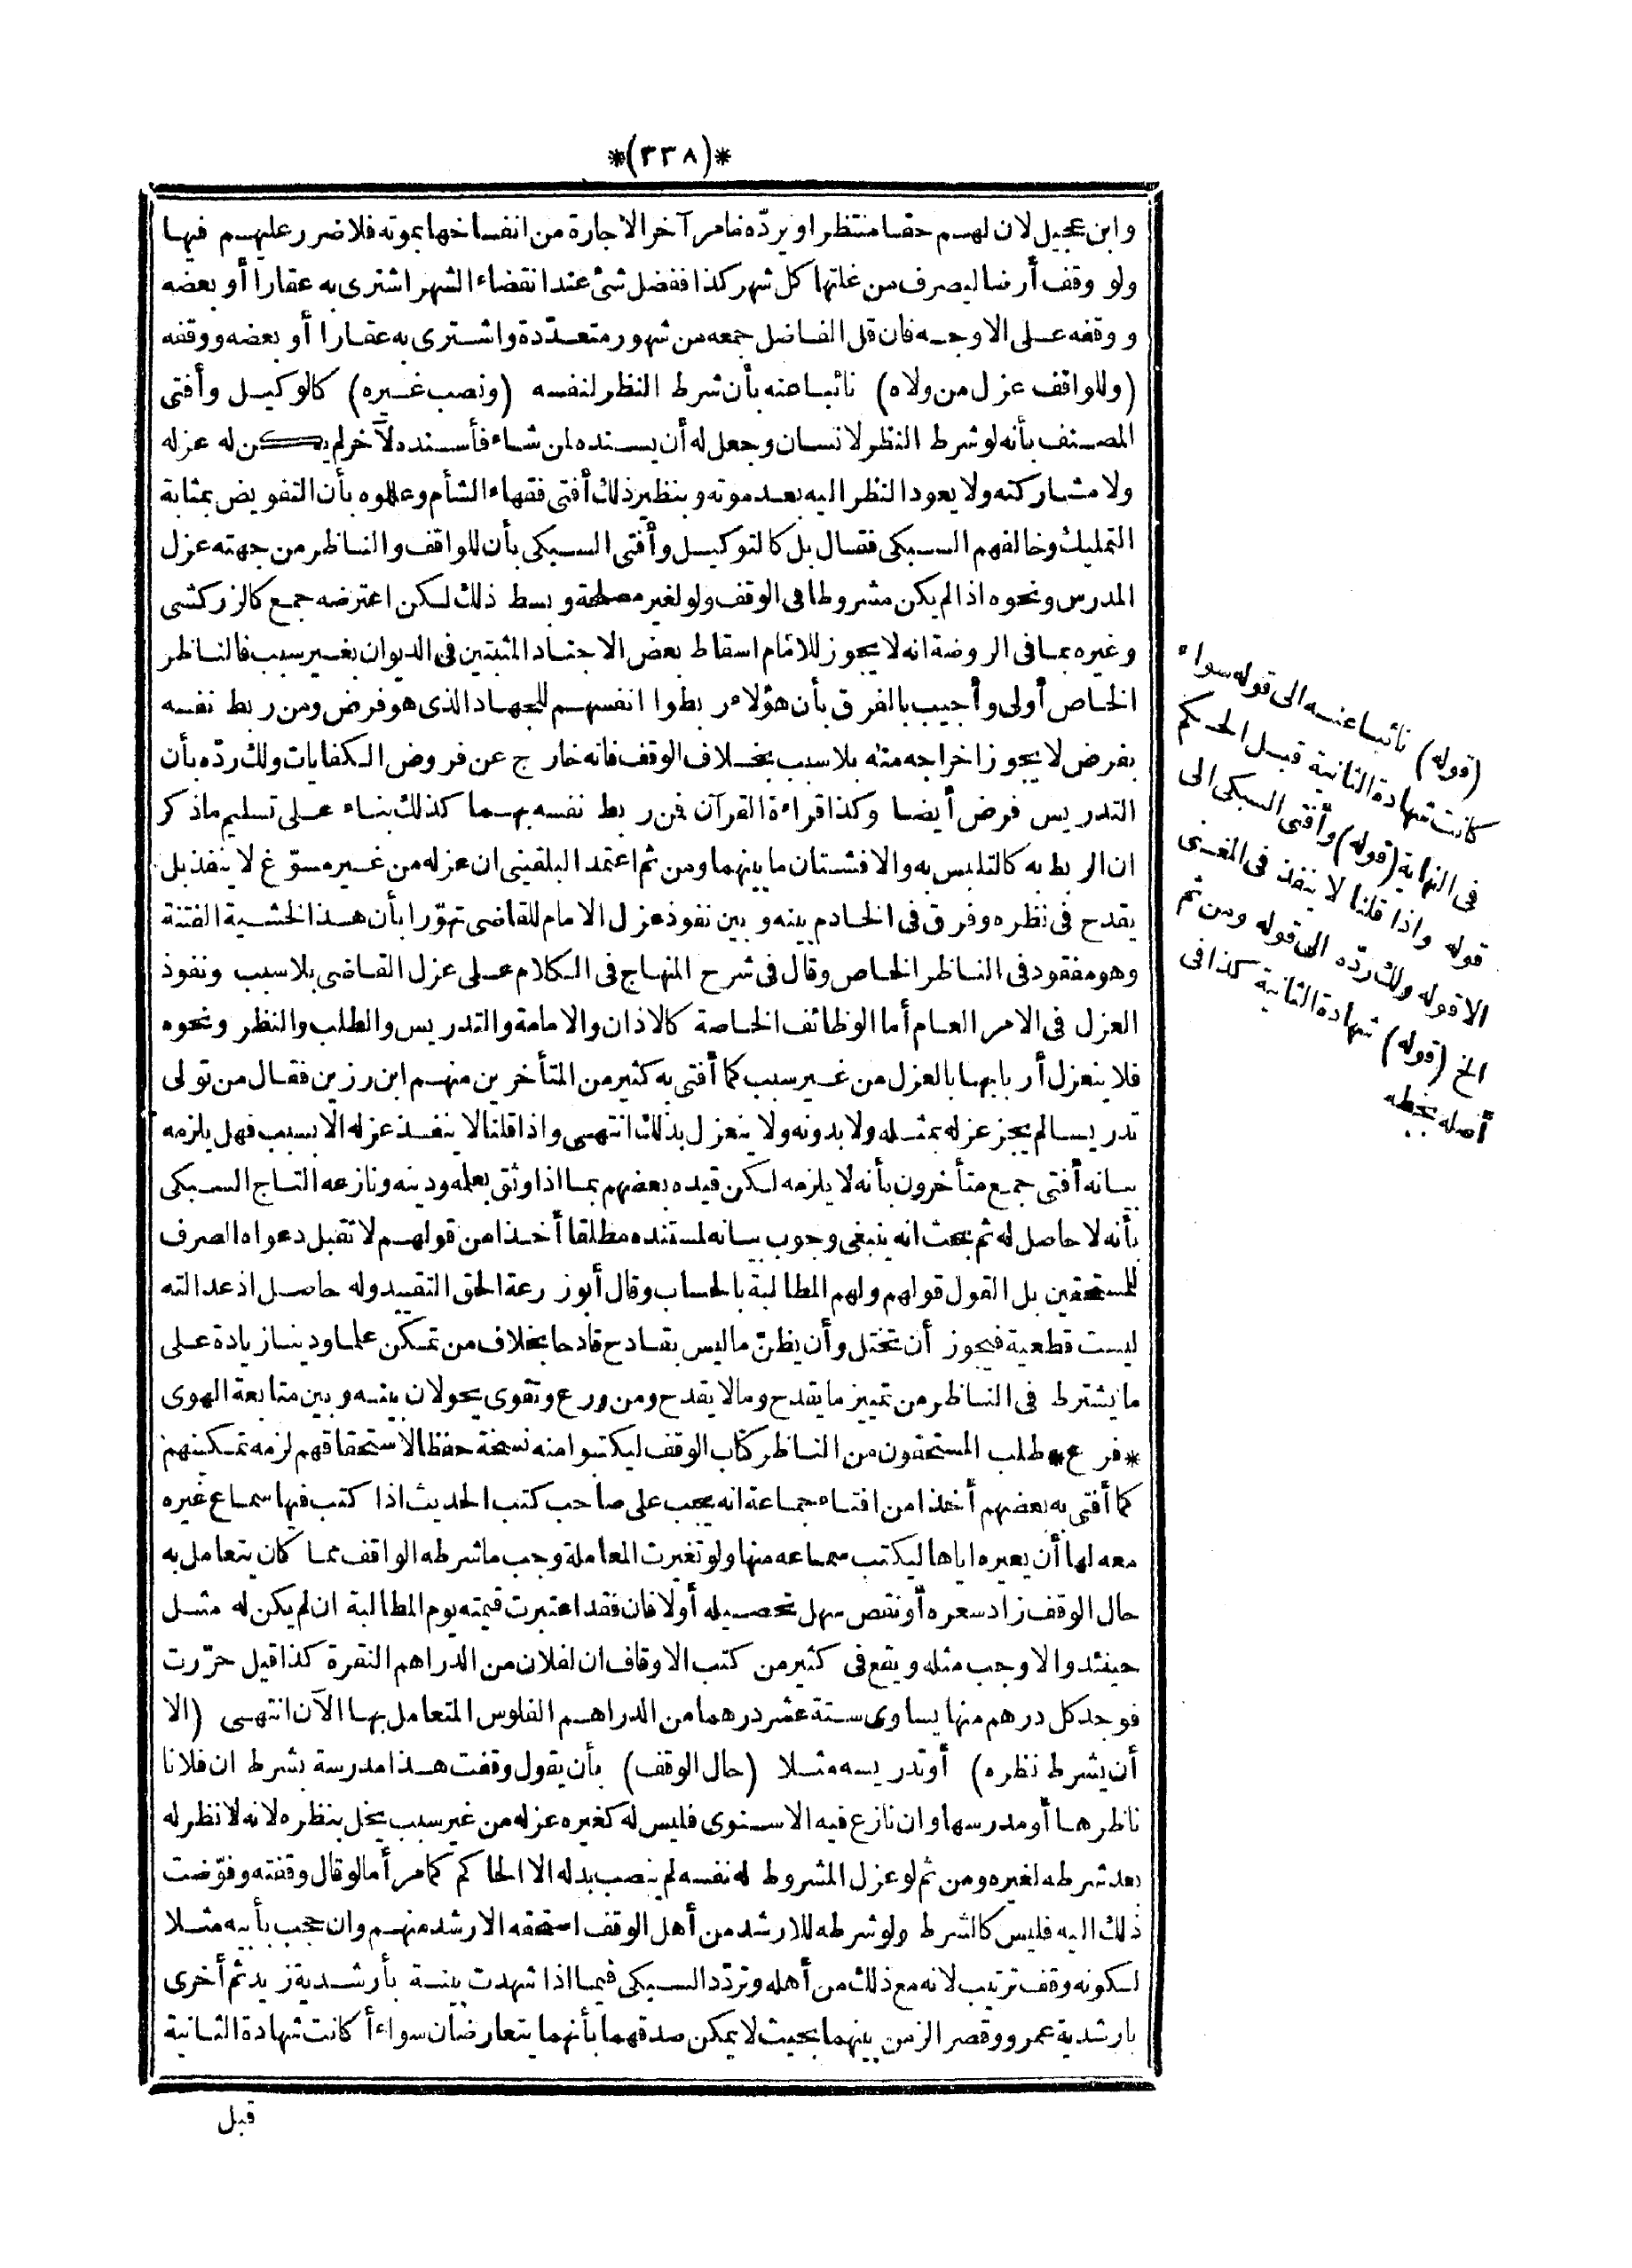 *(٣٣٨)*
وابن عجيل لان لهم حقا منتظرا ويردّه مامر آخر الاجارة من انفساخها بموته فلا ضرر عليهم فيها
ولو وقف أرضا ليصرف من غلتها كل شهر كذا ففضل شئ عند انقضاء الشهر اشترى به عقارا أو بعضه
ووقفه على الاوجه فان قل الفاضل جمعه من شهور متعدّدة واشترى به عقارا أو بعضه ووقفه
(وللواقف عزل من ولاه) نائبا عنه بأن شرط النظر لنفسه (ونصب غيره) كالوكيل وأفتى
المصنف بأنه لو شرط النظر لانسان وجعل له أن يسنده لمن شاء فأسنده لآخر لم يكن له عزله
ولا مشاركته ولا يعود النظر اليه بعد موته وبنظير ذلك أفتى فقهاء الشأم وعللوه بأن التفويض بمثابة
التمليك وخالفهم السبكى فقال بل كالتوكيل وأفتى السبكى بأن للواقف والناظر من جهته عزل
المدرس ونحوه اذا لم يكن مشروطا فى الوقف ولو لغير مصلحة وبسط ذلك لكن اعترضه جمع كالزركشى
وغيره بما فى الروضة انه لا يجوز للامام اسقاط بعض الاجناد المثبتين فى الديوان بغير سبب فالناظر
الخاص أولى وأجيب بالفرق بأن هؤلاء ربطوا انفسهم للجهاد الذى هو فرض ومن ربط نفسه
بفرض لا يجوز اخراجه منه بلا سبب بخلاف الوقف فانه خارج عن فروض الكفايات ولك ردّه بأن
التدريس فرض أيضا وكذا قراءة القرآن فمن ربط نفسه بهما كذلك بناء على تسليم ماذكر
ان الربط به كالتلبس به والا فشتان ما بينهما ومن ثم اعتمد البلقينى ان عزله من غير مسوّغ لا ينفذ بل
يقدح فى نظره وفرق فى الخادم بينه وبين نفوذ عزل الامام للقاضى تهوّرا بأن هذا لخشية الفتنة
وهو مفقود فى الناظر الخاص وقال فى شرح المنهاج فى الكلام على عزل القاضى بلا سبب ونفوذ
العزل فى الامر العام أما الوظائف الخاصة كالاذان والامامة والتدريس والطلب والنظر ونحوه
فلا ينعزل أربابها بالعزل من غير سبب كما أفتى به كثير من المتأخرين منهم ابن رزين فقال من تولى
تدريسا لم يجز عزله بمثله ولا بدونه ولا ينعزل بذلك انتهى واذا قلنا لا ينفذ عزله الا بسبب فهل يلزمه
بيانه أفتى جمع متأخرون بأنه لا يلزمه لكن قيده بعضهم بما اذا وثق بعلمه ودينه ونازعه التاج السبكى
بأنه لا حاصل له ثم بحث انه ينبغى وجوب بيانه لمستنده مطلقا أخذا من قولهم لا تقبل دعواه الصرف
للمستحقين بل القول قولهم ولهم المطالبة بالحساب وقال أبو زرعة الحق التقييد وله حاصل اذ عدالته
ليست قطعية فيجوز أن تختل وأن يظنّ ما ليس بقادح قادحا بخلاف من تمكن علما ودينا زيادة على
ما يشترط فى الناظر من تمييز ما يقدح وما لا يقدح ومن ورع وتقوى يحولان بينه وبين متابعة الهوى
*فرع* طلب المستحقون من الناظر كتاب الوقف ليكتبوا منه نسخة حفظا لاستحقاقهم لزمه تمكينهم
كما أفتى به بعضهم أخذا من افتاء جماعة انه يجب على صاحب كتب الحديث اذا كتب فيها سماع غيره
معه لها أن يعيره اياها ليكتب سماعه منها ولو تغيرت المعاملة وجب ما شرطه الواقف مما كان يتعامل به
حال الوقف زاد سعره أو نقص سهل تحصيله أولا فان فقد اعتبرت قيمته يوم المطالبة ان لم يكن له مثل
حينئذ والا وجب مثله ويقع فى كثير من كتب الاوقاف ان لفلان من الدراهم النقرة كذا قيل حرّرت
فوجد كل درهم منها يساوى ستة عشر درهما من الدراهم الفلوس المتعامل بها الآن انتهى (الا
أن يشرط نظره) أو تدريسه مثلا (حال الوقف) بأن يقول وقفت هذا مدرسة بشرط ان فلانا
ناظرها أو مدرسها وان نازع فيه الاسنوى فليس له كغيره عزله من غير سبب يخل بنظره لانه لا نظر له
بعد شرطه لغيره ومن ثم لو عزل المشروط له نفسه لم ينصب بدله الا الحاكم كما مر أما لو قال وقفته وفوّضت
ذلك اليه فليس كالشرط ولو شرطه للارشد من أهل الوقف استحقه الارشد منهم وان حجب بأبيه مثلا
لكونه وقف ترتيب لانه مع ذلك من أهله وتردّد السبكى فيما اذا شهدت بينة بأرشدية زيد ثم أخرى
بارشدية عمرو وقصر الزمن بينهما بحيث لا يمكن صدقهما بأنهما يتعارضان سواء أ كانت شهادة الثانية
قبل
(قوله) نائبا عنه الى قوله سواء
كانت شهادة الثانية قبل الحكم
فى النهاية (قوله) وأفتى السبكى الى
قوله واذا قلنا لا ينفذ فى المغنى
الا قوله ولك ردّه الى قوله ومن ثم
الخ (قوله) شهادة الثانية كذا فى
أصله بخطه